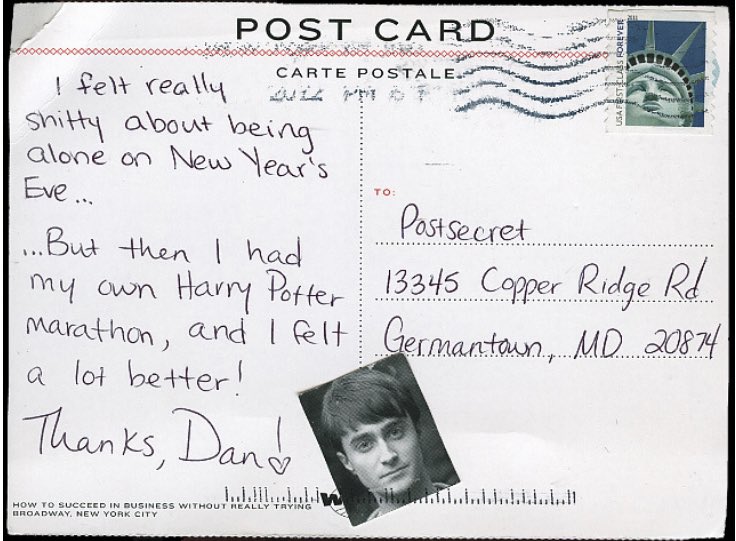 POST CARD
CARTE POSTALE
USA FIRST-CLASS FOREVER
I felt really
shitty about being
alone on New Year's
Eve...
...But then I had
my own Harry Potter
marathon, and I felt
a lot better!
Thanks, Dan!
TO:
Postsecret
13345 Copper Ridge Rd
Germantown, MD 20874
HOW TO SUCCEED IN BUSINESS WITHOUT REALLY TRYING
BROADWAY, NEW YORK CITY